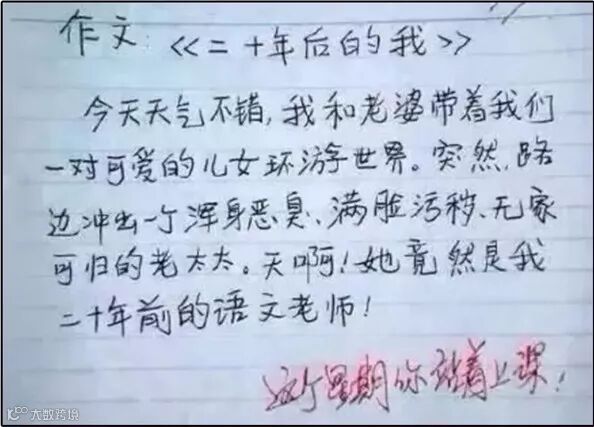 作文:《二十年后的我》
今天天气不错,我和老婆带着我们
一对可爱的儿女环游世界。突然,路
边冲出一个浑身恶臭、满脸污秽、无家
可归的老太太。天啊!她竟然是我
二十年前的语文老师!
这个星期你站着上课!
大数跨境